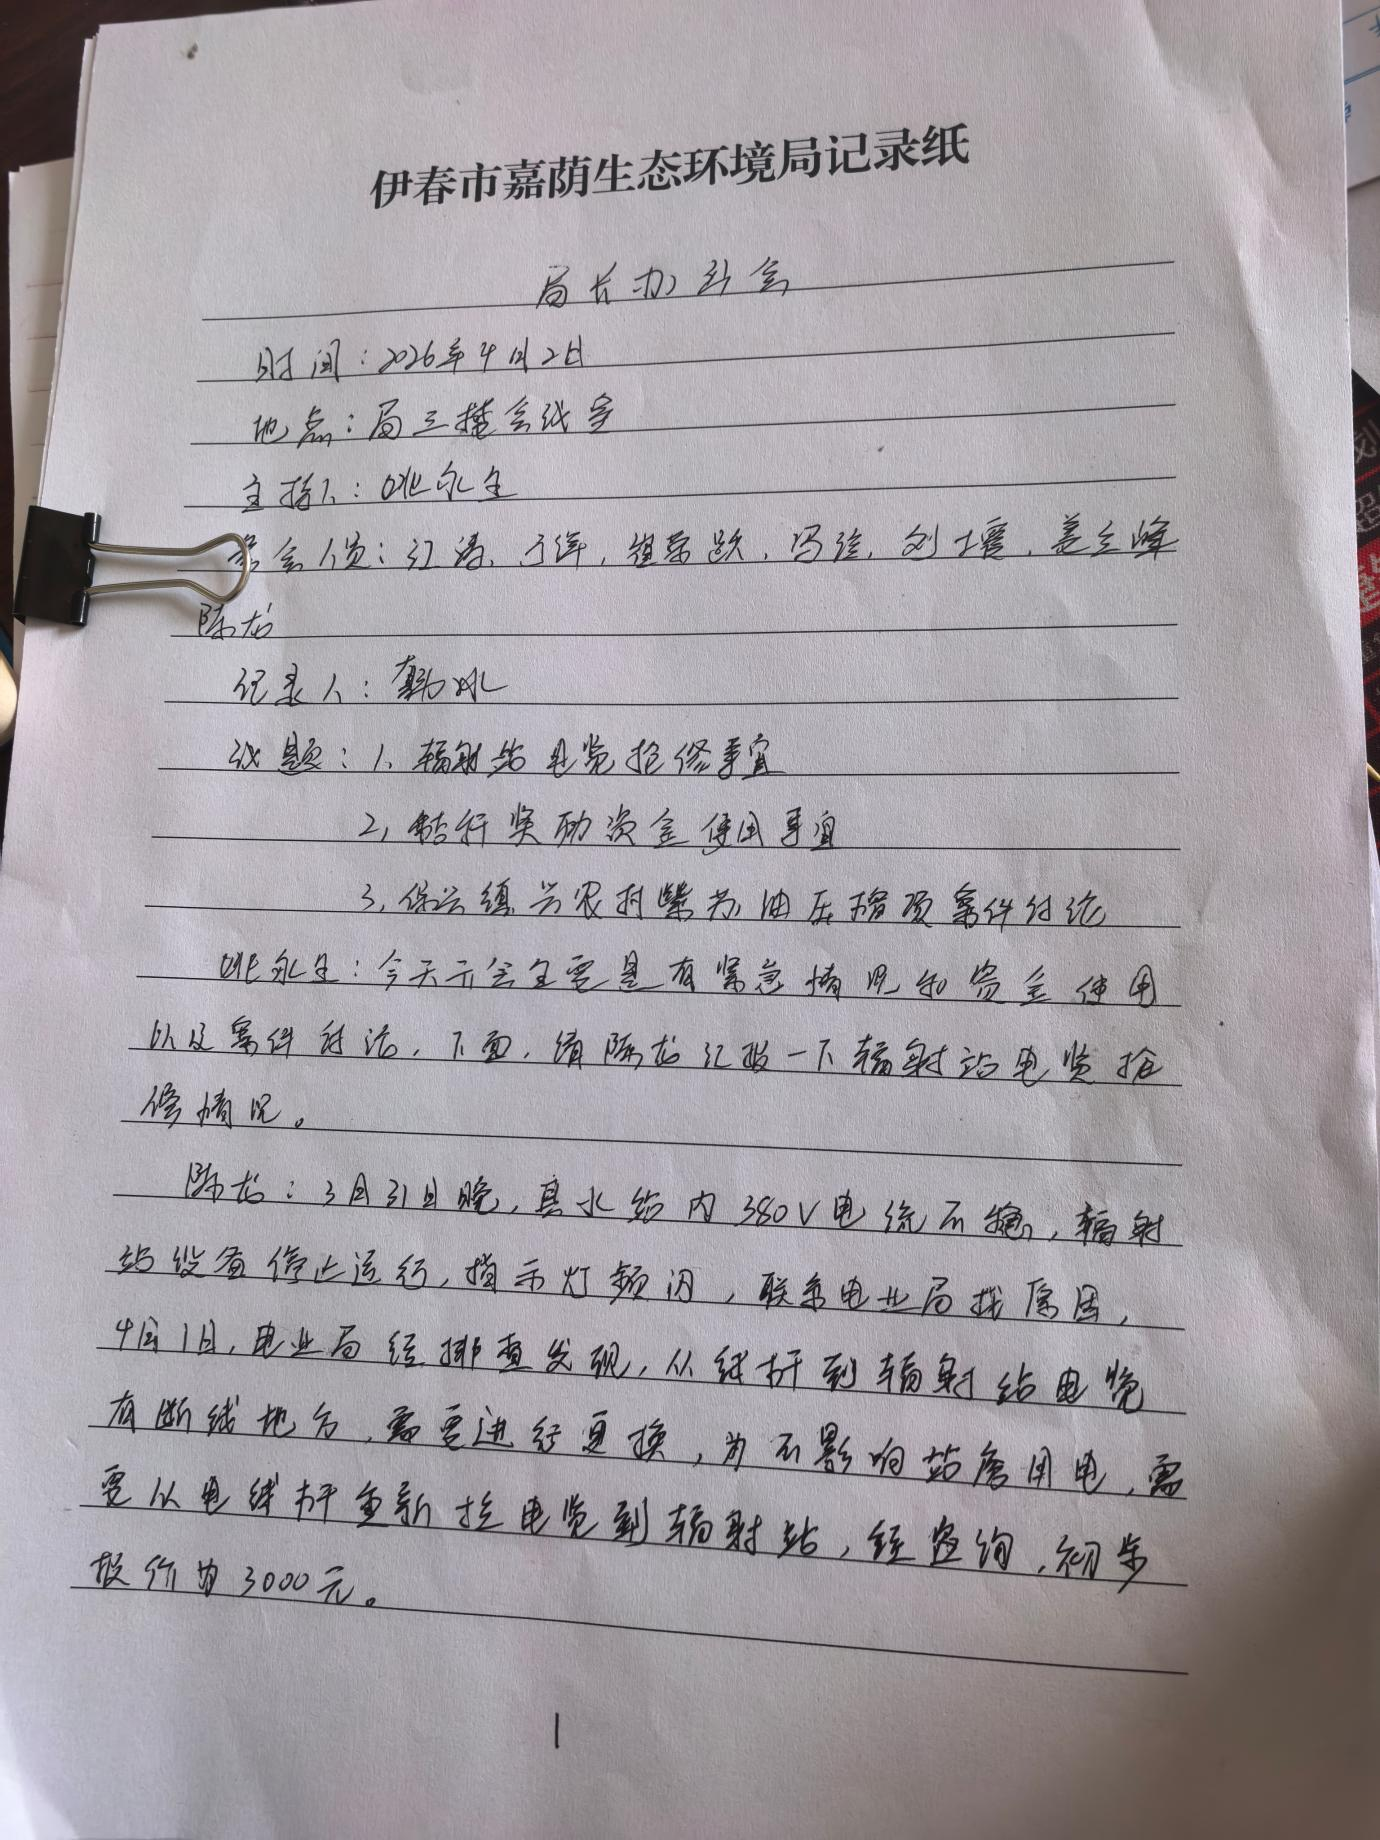 伊春市嘉荫生态环境局记录纸
局长办公会
时间：2026年4月2日
地点：局三楼会议室
主持人：姚永生
参会人员：江涛、于洋，祖荣跃，冯，刘，姜立峰
陈龙
记录人：
议题：1、辐射站电缆抢修事宜
2，秸秆奖励资金使用事宜
3，保兴镇兴农村紫苏油压榨项案件讨论
姚永生：今天开会主要是有紧急情况和资金使用
以及案件讨论，下面，请陈龙汇报一下辐射站电缆抢
修情况。
陈龙：3月31日晚，县水站内380V电流不稳，辐射
站设备停止运行，指示灯频闪，联系电业局找原因，
4月1日，电业局经排查发现，从线杆到辐射站电缆
有断线地方，需要进行更换，为不影响站房用电，需
要从电线杆重新拉电缆到辐射站，经咨询，初步
报价为3000元。
1